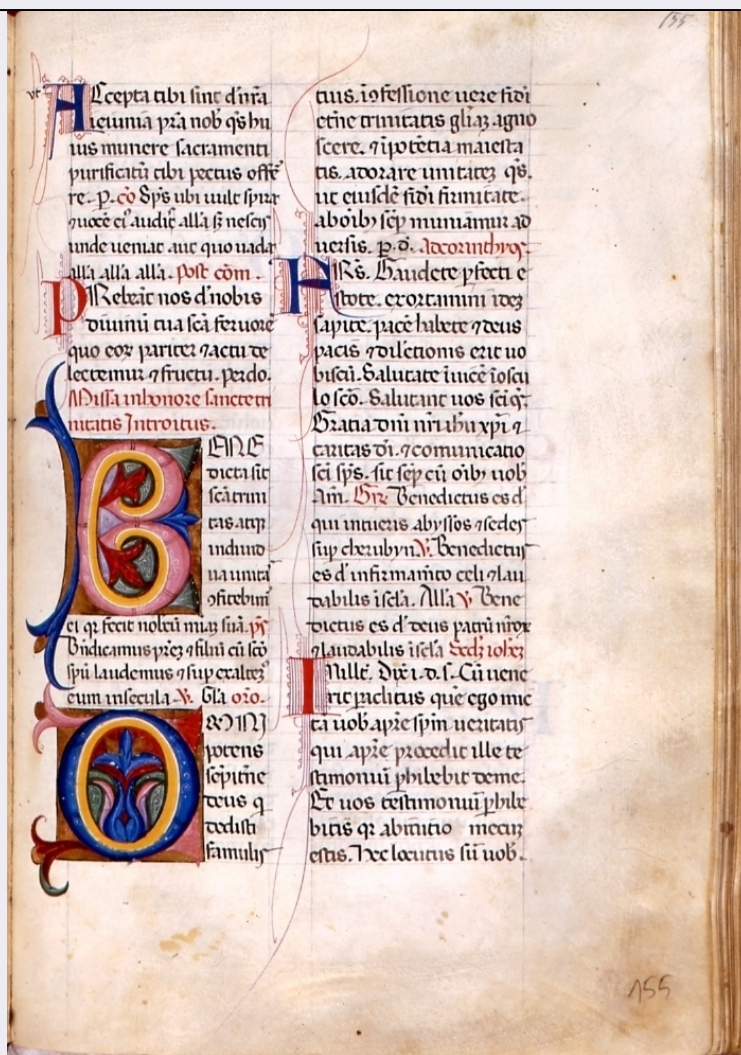 155
Accepta tibi sint dñ nr̃a
ieiunia pr̃a nob̃ qs̃ hu
ius munere sacramenti
purificatũ tibi pectus offẽ
re. p. cõ Sp̃s ubi uult spirat
⁊ uocẽ eiꝰ audit̃ alla sʒ nescis
unde ueniat aut quo uada
alla alla alla. Post cõm.
PRebeat̃ nos dñ nobis
diuinũ tua sc̃a feruorẽ
quo eoꝝ pariter ⁊ actu de
lectemur ⁊ fructu. per do.
Missa in honore sancte tri
nitatis Introitus.
BENE
dicta sit
sc̃a trini
tas atqʒ
indiuid
ua unitã
ꝯfitebim̃
ei qꝛ fecit nobcũ miãʒ suã. p̃s
Bñdicamus pr̃eʒ ⁊ filiũ cũ sc̃o
spũ laudemus ⁊ sup exalteꝰ
eum in secula ℣. Gl̃a oro.
OMNI
potens
sẽpitñe
deus q
dedisti
famulis
tuis. ĩ ꝯfessione uere fidei
etñe trinitatis gl̃iaʒ agno
scere. ⁊ ĩ potẽtia maiesta
tis. adorare unitateʒ qs̃.
ut eiusdẽ fidei firmitate.
ab oĩbʒ sẽp muniamur ad
uersis. p. d. Ad corinthyos
FRs̃. Gaudete pfecti e
stote. exortamini ideʒ
sapite. pacẽ habete ⁊ deus
pacis ⁊ dilectionis erit uo
biscũ. Salutate ĩuicẽ ĩ oscu
lo sc̃o. Salutant uos sc̃i q̃.
Gratia dñi nr̃i ihũ xp̃i ⁊
caritas dĩ. ⁊ comunicatio
sc̃i sp̃s. sit sẽp cũ oĩbʒ uob
am̃. Gr̃. Benedictus es d̃
qui intueris abyssos ⁊ sedes
sup cherubyn. ℣. Benedictus
es d̃ in firmamẽto celi ⁊ lau
dabilis ĩ sc̃la. Alla ℣. Bene
dictus es d̃ deus patrũ nr̃oꝝ
⁊ laudabilis ĩ sc̃la Secdʒ iohẽʒ
In illt̃. Dix̃ i. d. s. Cũ uene
rit paclitus quẽ ego mic
tã uob apr̃e spm̃ ueritatis
qui apr̃e procedit ille te
stimoniũ phibebit de me.
Et uos testimoniũ phibe
bitis qꝛ ab initio mecũʒ
estis. Hec locutus sũ uob.
155